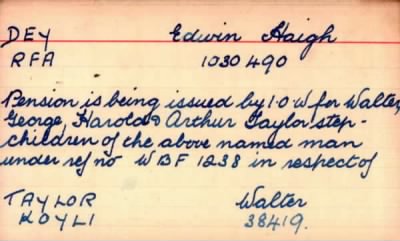 DEY Edwin Haigh
RFA 1030490
Pension is being issued by I.O.W for Walter,
George, Harold & Arthur Taylor step-
children of the above named man
under ref no WBF 1238 in respect of
TAYLOR Walter
KOYLI 38419.